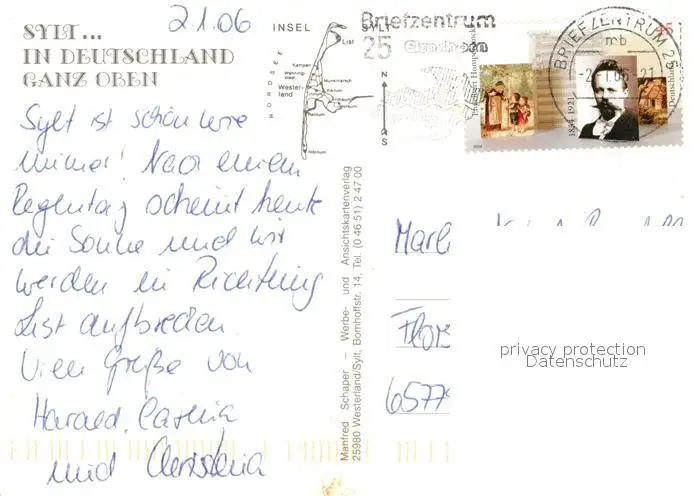 2.1.06
SYLT...
IN DEUTSCHLAND
GANZ OBEN
INSEL SYLT
NORDSEE
List
Kampen
Westerland
Keitum
N
S
Briefzentrum
25
BRIEFZENTRUM 25
mb
Engelbert Humperdinck
1854 - 1921
Deutschland
45
Sylt ist schön wie
immer! Nach einem
Regentag scheint heute
die Sonne und wir
werden in Richtung
List aufbrechen.
Viele Grüße von
Harald,
und Christina
Manfred Schaper – Werbe- und Ansichtskartenverlag
25980 Westerland/Sylt, Bomhoffstr. 14, Tel. (0 46 51) 2 47 00
Marl
Flor
65779
privacy protection
Datenschutz